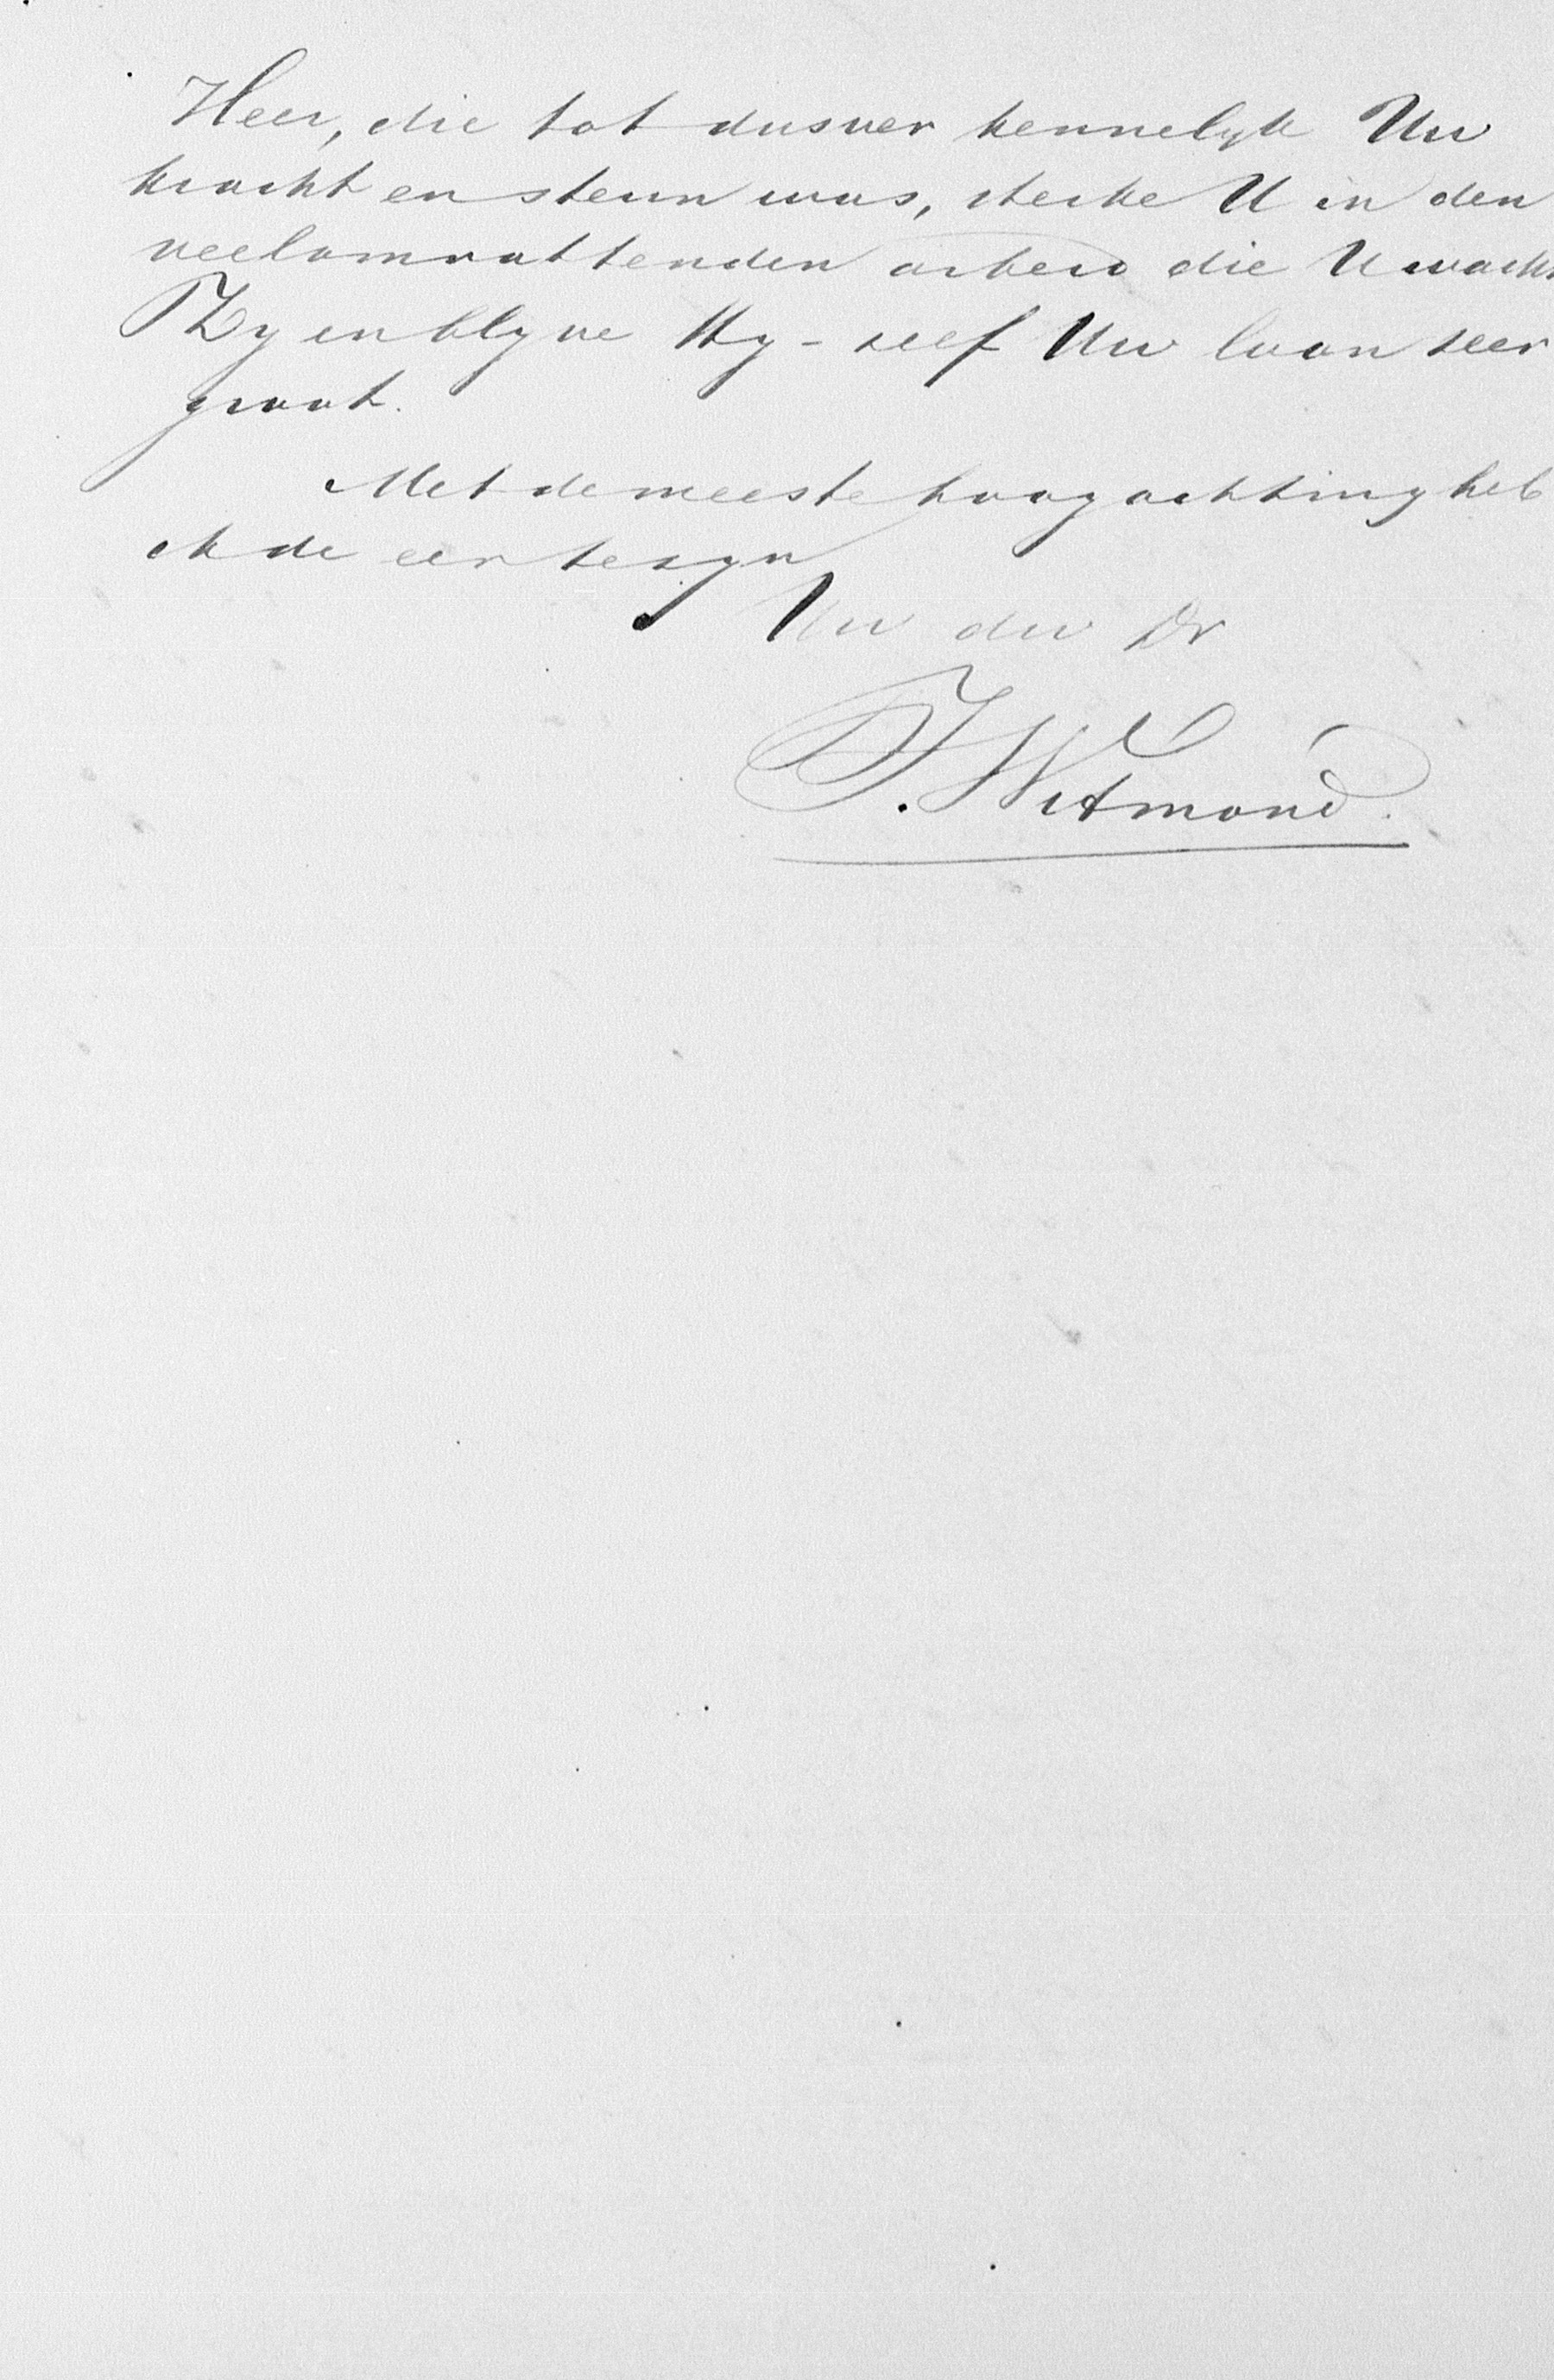 Heer, die tot dusver kennelyk Uw
kracht en steun was, sterke U in den
veelomvattenden arbeid die U wacht
Zy en blyve Hy - zelf Uw loon zeer
groot.
Met de meeste hoogachting heb
ik de eer te zyn
Uw dw Dr
J. Witmond.